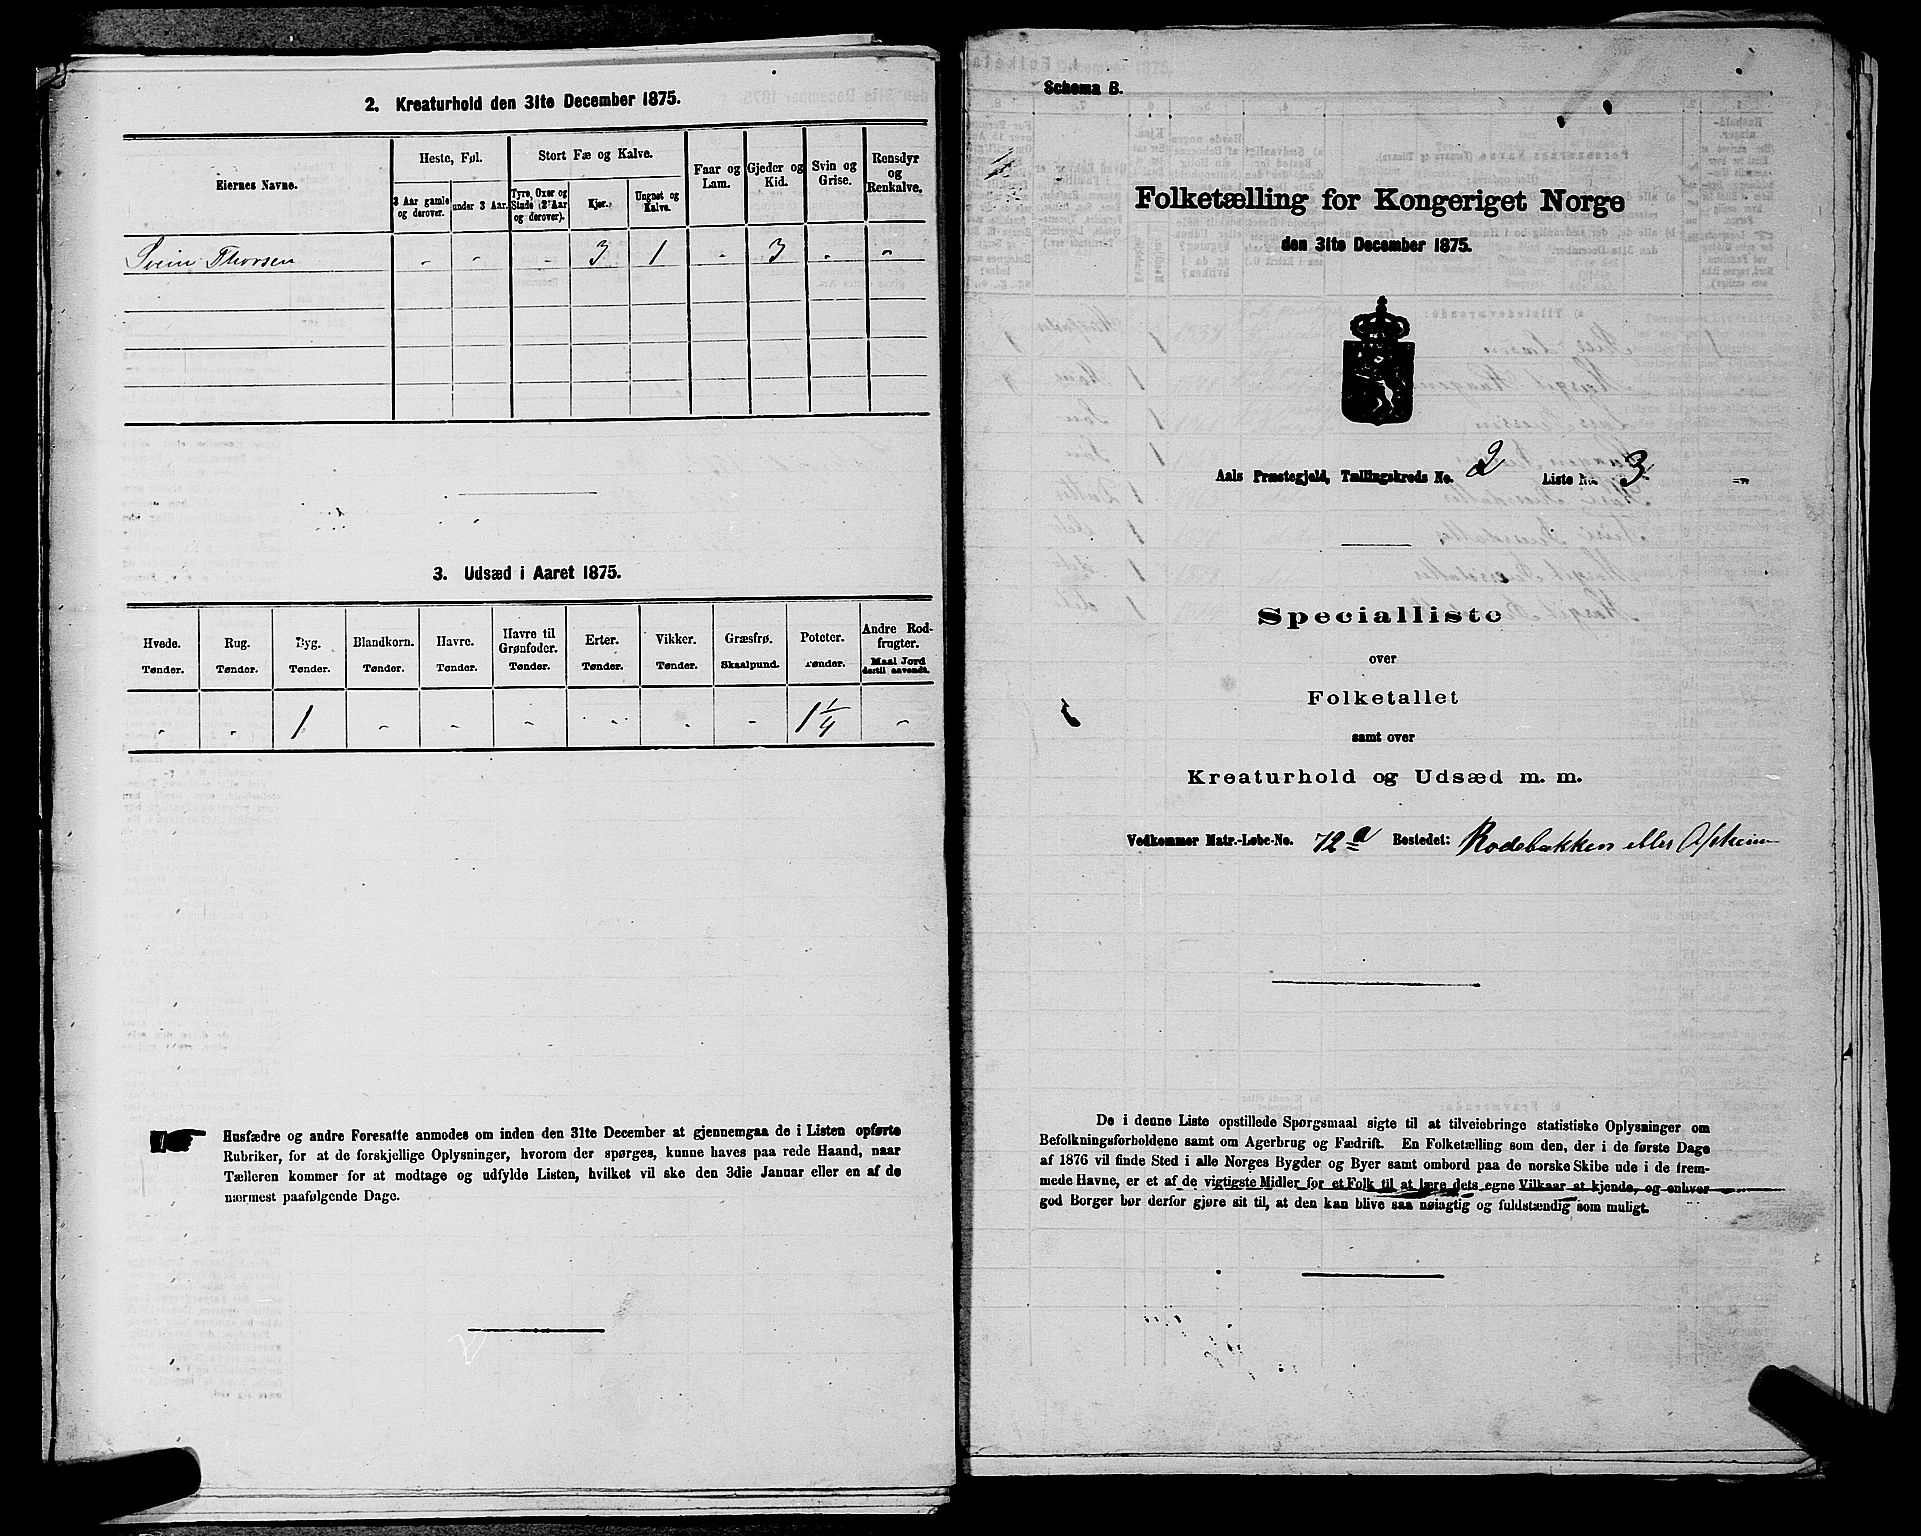 2. Kreaturhold den 31te December 1875.
Eiernes Navne.
Heste, Føl.
Stort Fæ og Kalve.
Faar og Lam.
Gjeder og Kid.
Svin og Grise.
Rensdyr og Renkalve.
3 Aar gamle og derover.
under 3 Aar.
Tyre, Oxer og Stude (2 Aar og derover).
Kjør.
Ungnøt og Kalve.
Svein Thorsen - - - 3 1 - 3 - -
3. Udsæd i Aaret 1875.
Hvede. Rug. Byg. Blandkorn. Havre. Havre til Grønfoder. Erter. Vikker. Græsfrø. Poteter. Andre Rodfrugter.
Tønder. Tønder. Tønder. Tønder. Tønder. Tønder. Tønder. Tønder. Skaalpund. Tønder. Maal Jord dertil anvendt.
- - 1 - - - - - - 1 1/4 -
Husfædre og andre Foresatte anmodes om inden den 31te December at gjennemgaa de i Listen opførte
Rubriker, for at de forskjellige Oplysninger, hvorom der spørges, kunne haves paa rede Haand, naar
Tælleren kommer for at modtage og udfylde Listen, hvilket vil ske den 3die Januar eller en af de
nærmest paafølgende Dage.
Schema B.
Folketælling for Kongeriget Norge
den 31te December 1875.
Aals Præstegjeld, Tællingskreds No. 2 Liste No. 3
Specialliste
over
Folketallet
samt over
Kreaturhold og Udsæd m. m.
Vedkommer Matr.-Løbe-No. 72a Bostedet: Rodebakken eller
De i denne Liste opstillede Spørgsmaal sigte til at tilveiebringe statistiske Oplysninger om
Befolkningsforholdene samt om Agerbrug og Fædrift. En Folketælling som den, der i de første Dage
af 1876 vil finde Sted i alle Norges Bygder og Byer samt ombord paa de norske Skibe ude i de frem-
mede Havne, er et af de vigtigste Midler for et Folk til at lære dets egne Vilkaar at kjende, og enhver
god Borger bør derfor gjøre sit til, at den kan blive saa nøiagtig og fuldstændig som muligt.